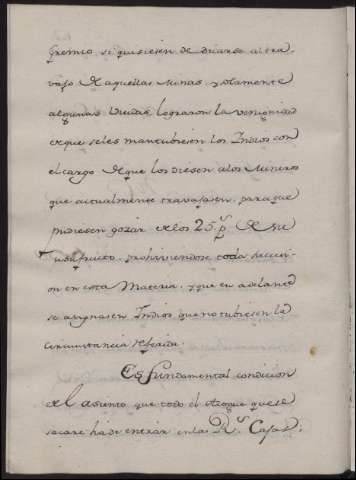 Gremio, se quisiesen dedicarse al tra-
vajo de aquellas Minas, y solamente
algunas Viudas lograron la venignidad
de que se les mantubiesen los Indios con
el cargo de que los diesen a los Mineros
que actualmente travajasen, para que
pudiesen gozar de los 25 p.s de su
usufructo, prohiviendose toda succesi-
on en esta Materia, y que en adelante
se asignasen Indios que no tubiesen la
circunstancia referida.
Es fundamental condicion
del asiento que todo el Azogue que se
sacare ha de entrar en las R.s Caxas.